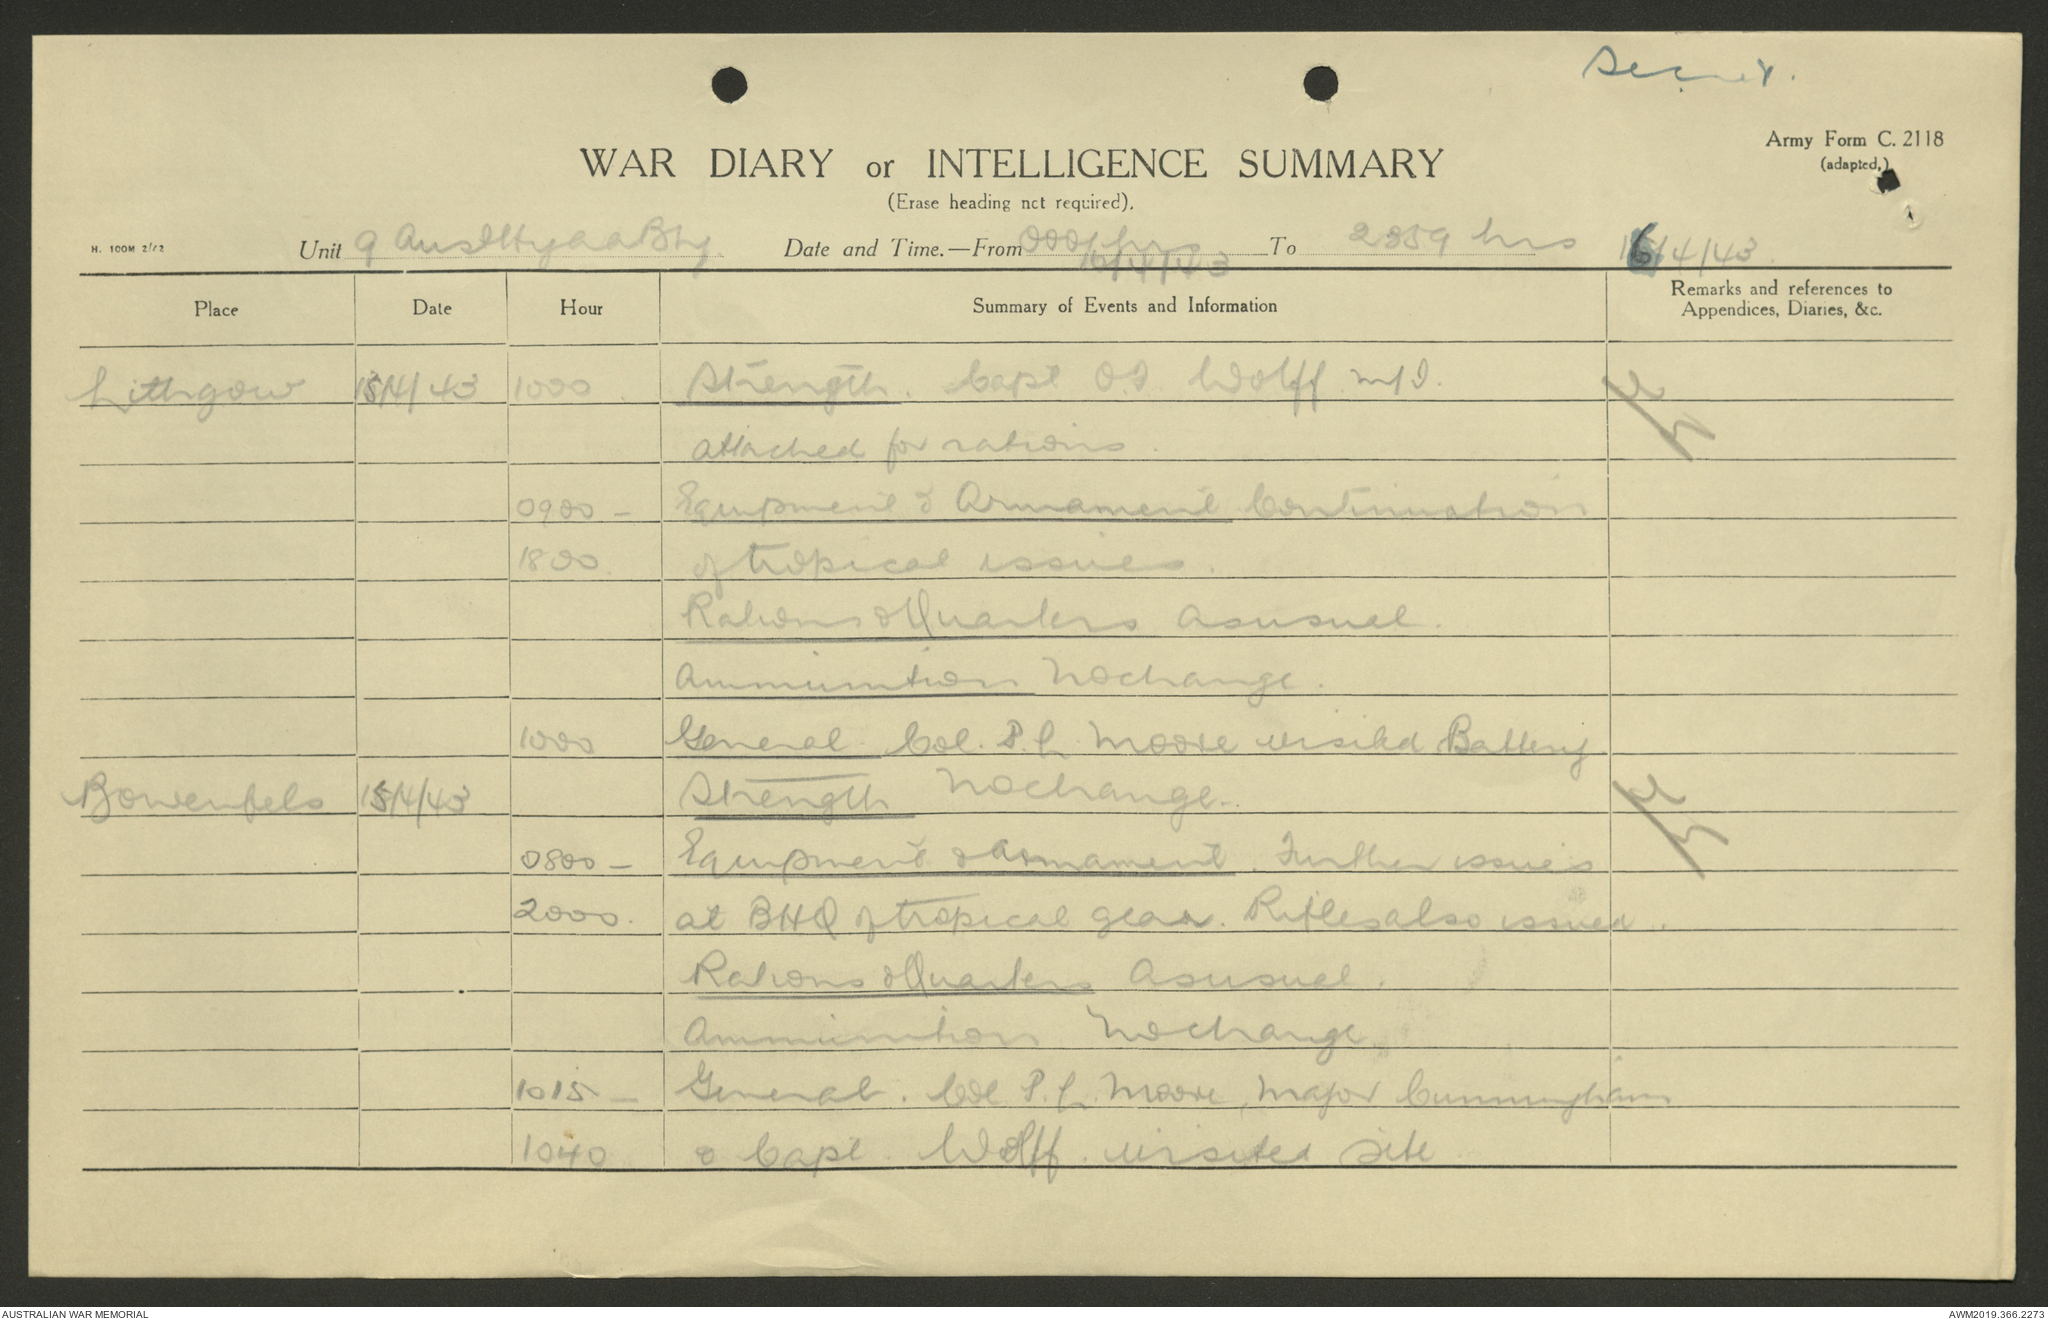 Secret.
Army Form C. 2118
(adapted,)
WAR DIARY or INTELLIGENCE SUMMARY
(Erase heading nct required).
H. 100M 2/12
Unit 9 Aust Hy aa Bty. Date and Time.—From 0001 hrs 16/4/43 To 2359 hrs 16/4/43.
Place Date Hour Summary of Events and Information Remarks and references to Appendices, Diaries, &c.
Lithgow 15/4/43 1000 Strength. Capt O.I. Wolff
attached for rations.
0900 - Equipment & Armament Continuation
1800 of tropical issues.
Rations & Quarters as usual.
Ammunition No change.
1000 General Col. P.L. Moore visited Battery
Bowenfels 15/4/43 Strength No change.
0800 - Equipment & armament. Further issues
2000. at BHQ of tropical gear. Rifles also issued.
Rations & Quarters as usual.
Ammunition No change.
1015 - General. Col P.L. Moore, Major Cunningham
1040 & Capt. Wolff. visited site
AUSTRALIAN WAR MEMORIAL
AWM2019.366.2273